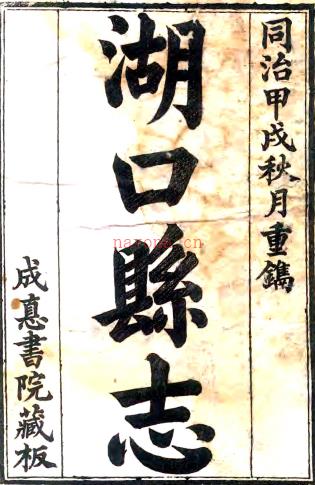 同治甲戌秋月重鐫
湖口縣志
成悳書院藏板